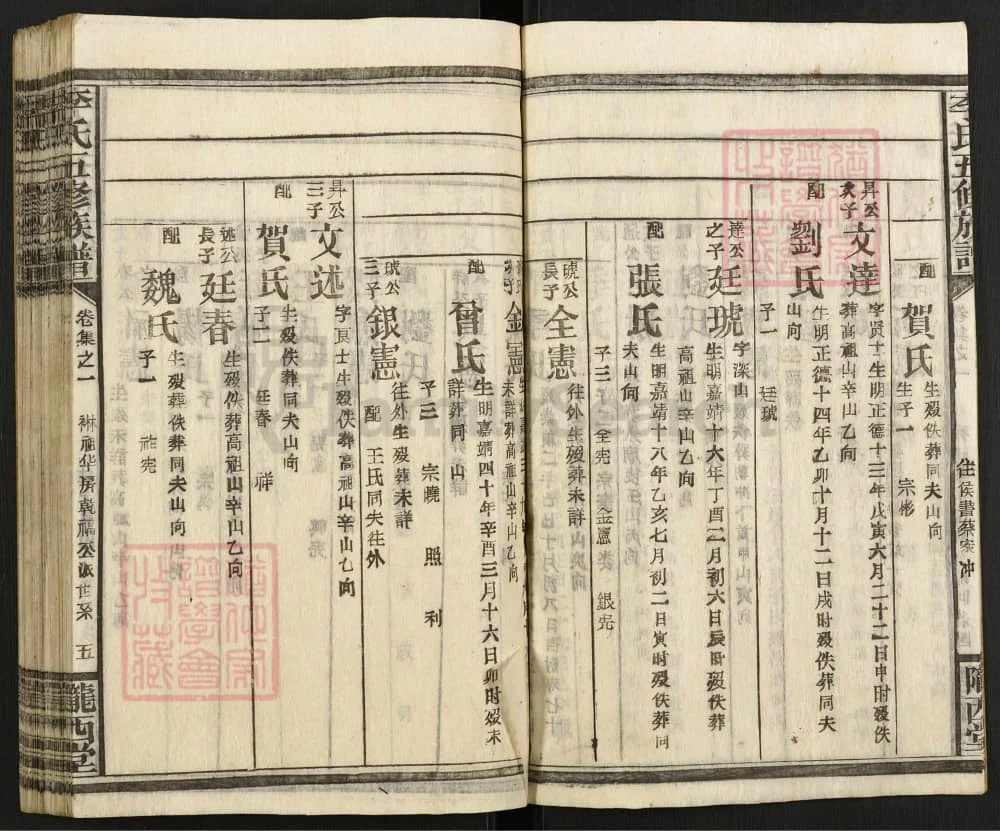 李氏五修族譜
隴西堂
配
賀氏
生歿佚葬同夫山向
生子一 宗彬
住侯書蔡家冲
昇公
次子
文達
字賢士生明正德十三年戊寅六月二十二日申時歿佚
葬高祖山辛山乙向
配
劉氏
生明正德十四年乙卯十月十二日戌時歿佚葬同夫
山向
子一 廷琥
達公
之子
廷琥
字深山
生明嘉靖十六年丁酉二月初六日辰時歿佚葬
高祖山辛山乙向
配
張氏
生明嘉靖十八年乙亥七月初二日寅時歿佚葬同
夫山向
子三 全宪 金憲 銀宪
琥公
長子
全憲
往外生歿葬未詳
琥公
次子
金憲
未詳葬高祖山辛山乙向
配
曾氏
生明嘉靖四十年辛酉三月十六日卯时歿未
詳葬同夫山
子三 宗曉 照 利
琥公
三子
銀憲
往外生歿葬未詳
配 王氏同夫往外
昇公
三子
文述
字良士生歿佚葬高祖山辛山乙向
配
賀氏
生歿佚葬同夫山向
子二 廷春 祥
述公
長子
廷春
生歿佚葬高祖山辛山乙向
配
魏氏
生歿葬佚葬同夫山向
子一 祚宪
李氏五修族譜
卷集之一
琳祖华房乾福公派世系
五
隴西堂